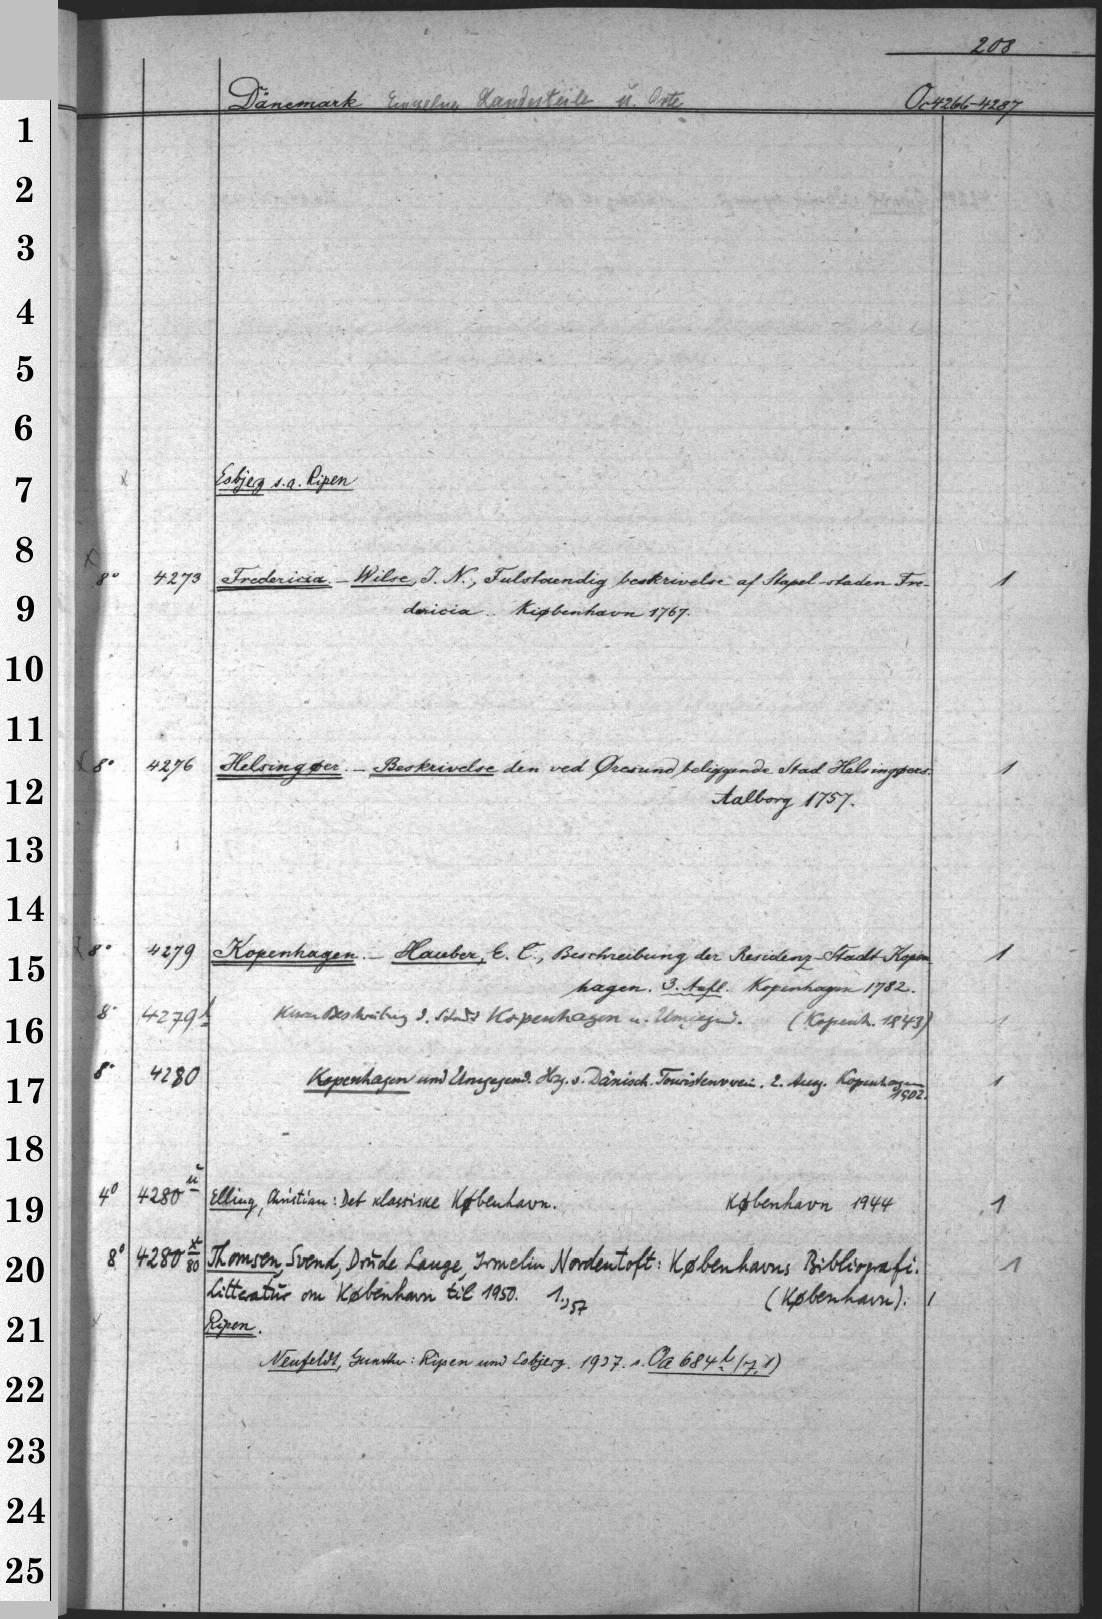 208
Dänemark Einzelne Landesteile u. Orte Oc 4266-4287
1
2
3
4
5
6
7 Esbjerg s.a. Ripen
8
8° 4273 Fredericia. – Wilse, J. N., Fulstændig beskrivelse af Stapel-staden Fre- 1
9 dericia .. Kiøbenhavn 1767.
10
11
8° 4276 Helsingøer. – Beskrivelse den ved Øresund beliggende Stad Helsingøers. 1
12 Aalborg 1757.
13
14
8° 4279 Kopenhagen. – Hauber, E. C., Beschreibung der Residenz-Stadt Kopen- 1
15 hagen. 3. Aufl. Kopenhagen 1782.
16 8° 4279 b Kurze Beschreibung d. Stadt Kopenhagen u. Umgegend. (Kopenh. 1843) 1
17 8° 4280 Kopenhagen und Umgegend. Hg. v. Dänisch. Touristenverein. 2. Ausg. Kopenhagen 1
1902.
18
19 4° 4280 u Elling, Christian: Det klassiske København. København 1944 1
20 8° 4280 x/80 Thomsen, Svend, Drude Lange, Irmelin Nordentoft: Københavns Bibliografi. 1
Litteratur om København til 1950. 1., 57 (København). 1
21 Ripen.
22 Neufeldt, Gunther: Ripen und Esbjerg. 1937. s. Oa 684 h (7,1)
23
24
25